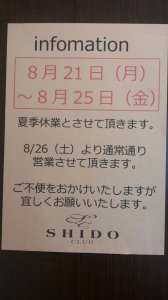 infomation
8月21日（月）
～8月25日（金）
夏季休業とさせて頂きます。
8/26（土）より通常通り
営業させて頂きます。
ご不便をおかけいたしますが
宜しくお願いいたします。
SHIDO
CLUB